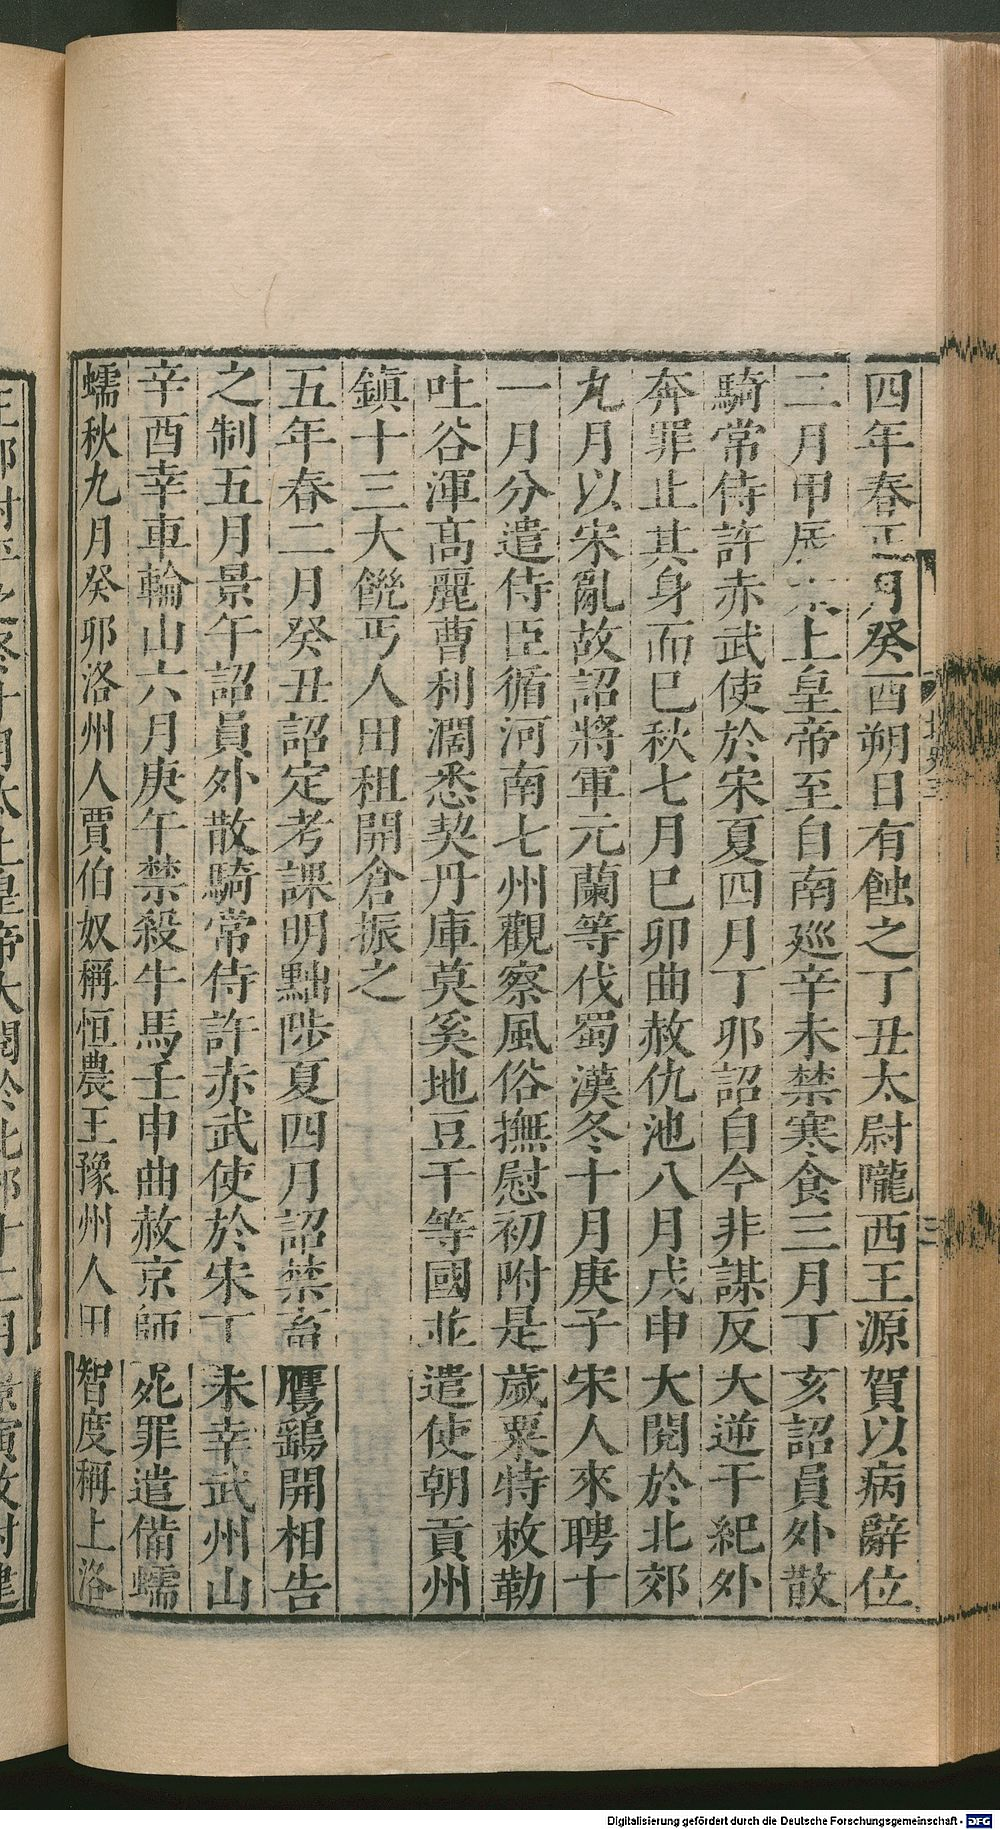 四年春正月癸酉朔日有蝕之丁丑太尉隴西王源賀以病辭位
二月甲辰太上皇帝至自南巡辛未禁寒食三月丁亥詔員外散
騎常侍許赤武使於宋夏四月丁卯詔自今非謀反大逆干紀外
奔罪止其身而已秋七月巳卯曲赦仇池八月戊申大閱於北郊
九月以宋亂故詔將軍元蘭等伐蜀漢冬十月庚子宋人來聘十
一月分遣侍臣循河南七州觀察風俗撫慰初附是歲粟特敕勒
吐谷渾高麗曹利濶悉契丹庫莫奚地豆干等國並遣使朝貢州
鎮十三大饑丐人田租開倉振之
五年春二月癸丑詔定考課明黜陟夏四月詔禁畜鷹鷂開相告
之制五月景午詔員外散騎常侍許赤武使於宋丁未幸武州山
辛酉幸車輪山六月庚午禁殺牛馬壬申曲赦京師死罪遣備蠕
蠕秋九月癸卯洛州人賈伯奴稱恒農王豫州人田智度稱上洛
北史三
三
Digitalisierung gefördert durch die Deutsche Forschungsgemeinschaft - DFG